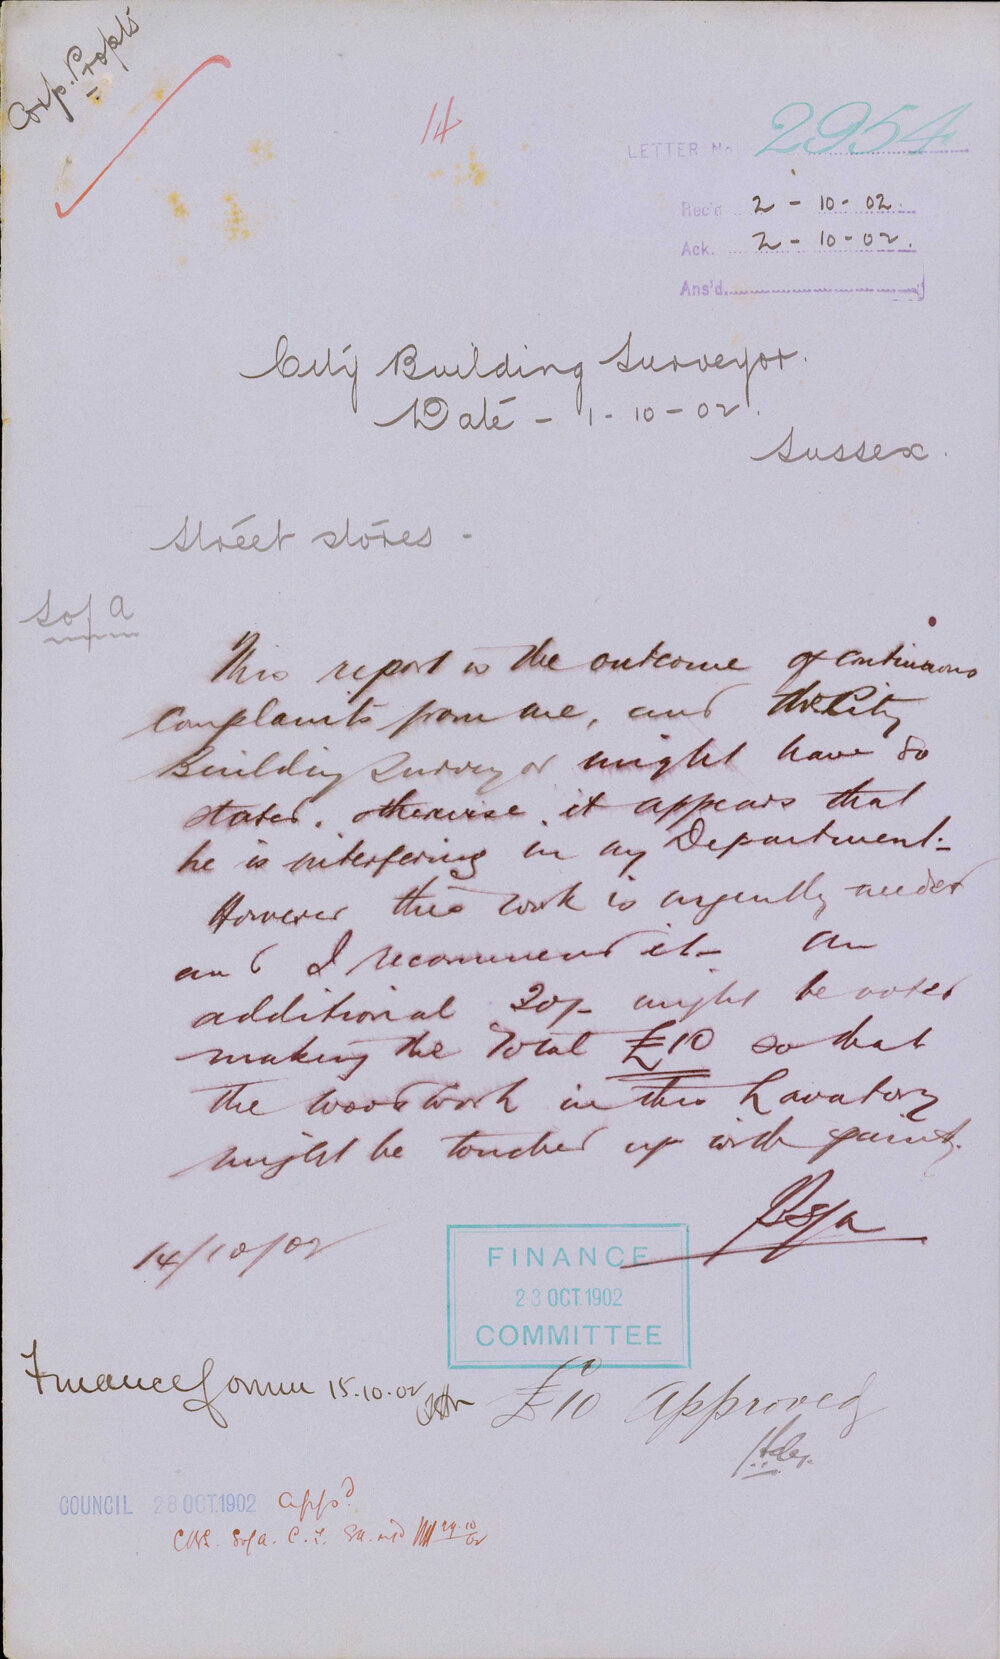 Corp. Propts
14
LETTER No 2954
Rec'd 2-10-02.
Ack. 2-10-02.
Ans'd.
City Building Surveyor.
Date - 1-10-02.
Sussex.
Street stores -
S of A
This report is the outcome of continuous
complaints from me, and the City
Building Surveyor might have so
stated. otherwise it appears that
he is interfering in my Department.-
However this work is urgently needed
and I recommend it- An
additional 20/- might be voted
making the Total £10 so that
the woodwork in this Lavatory
might be touched up with paint.
14/10/02
FINANCE
23 OCT.1902
COMMITTEE
Finance Comm 15.10.02
£10 Approved
COUNCIL 28 OCT.1902 appd
CBS. Sofa. C.T.